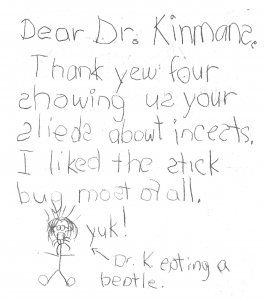 Dear Dr. Kinmans.
Thank yew four
showing us your
slieds about incests.
I liked the stick
bug most of all.
yuk!
Dr. K eating a
beatle.